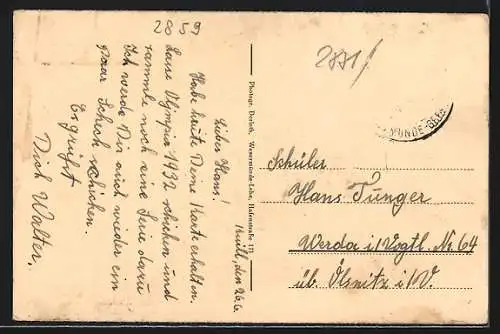 2859
den 26.6.
Lieber Hans!
Habe heute Deine Karte erhalten.
Lass Olympia 1932 schicken und
sammle noch eine Serie dazu
Ich werde Dir auch wieder ein
paar Schock schicken.
Es grüßt
Dich Walter.
Photogr. Dorath, Wesermünde-Lehe, Hafenstraße 171
2881/
MÜNDE-GEES
Schüler
Hans Tunger
Werda i/Vogtl. Nr. 64
üb. Ölsnitz i/V.